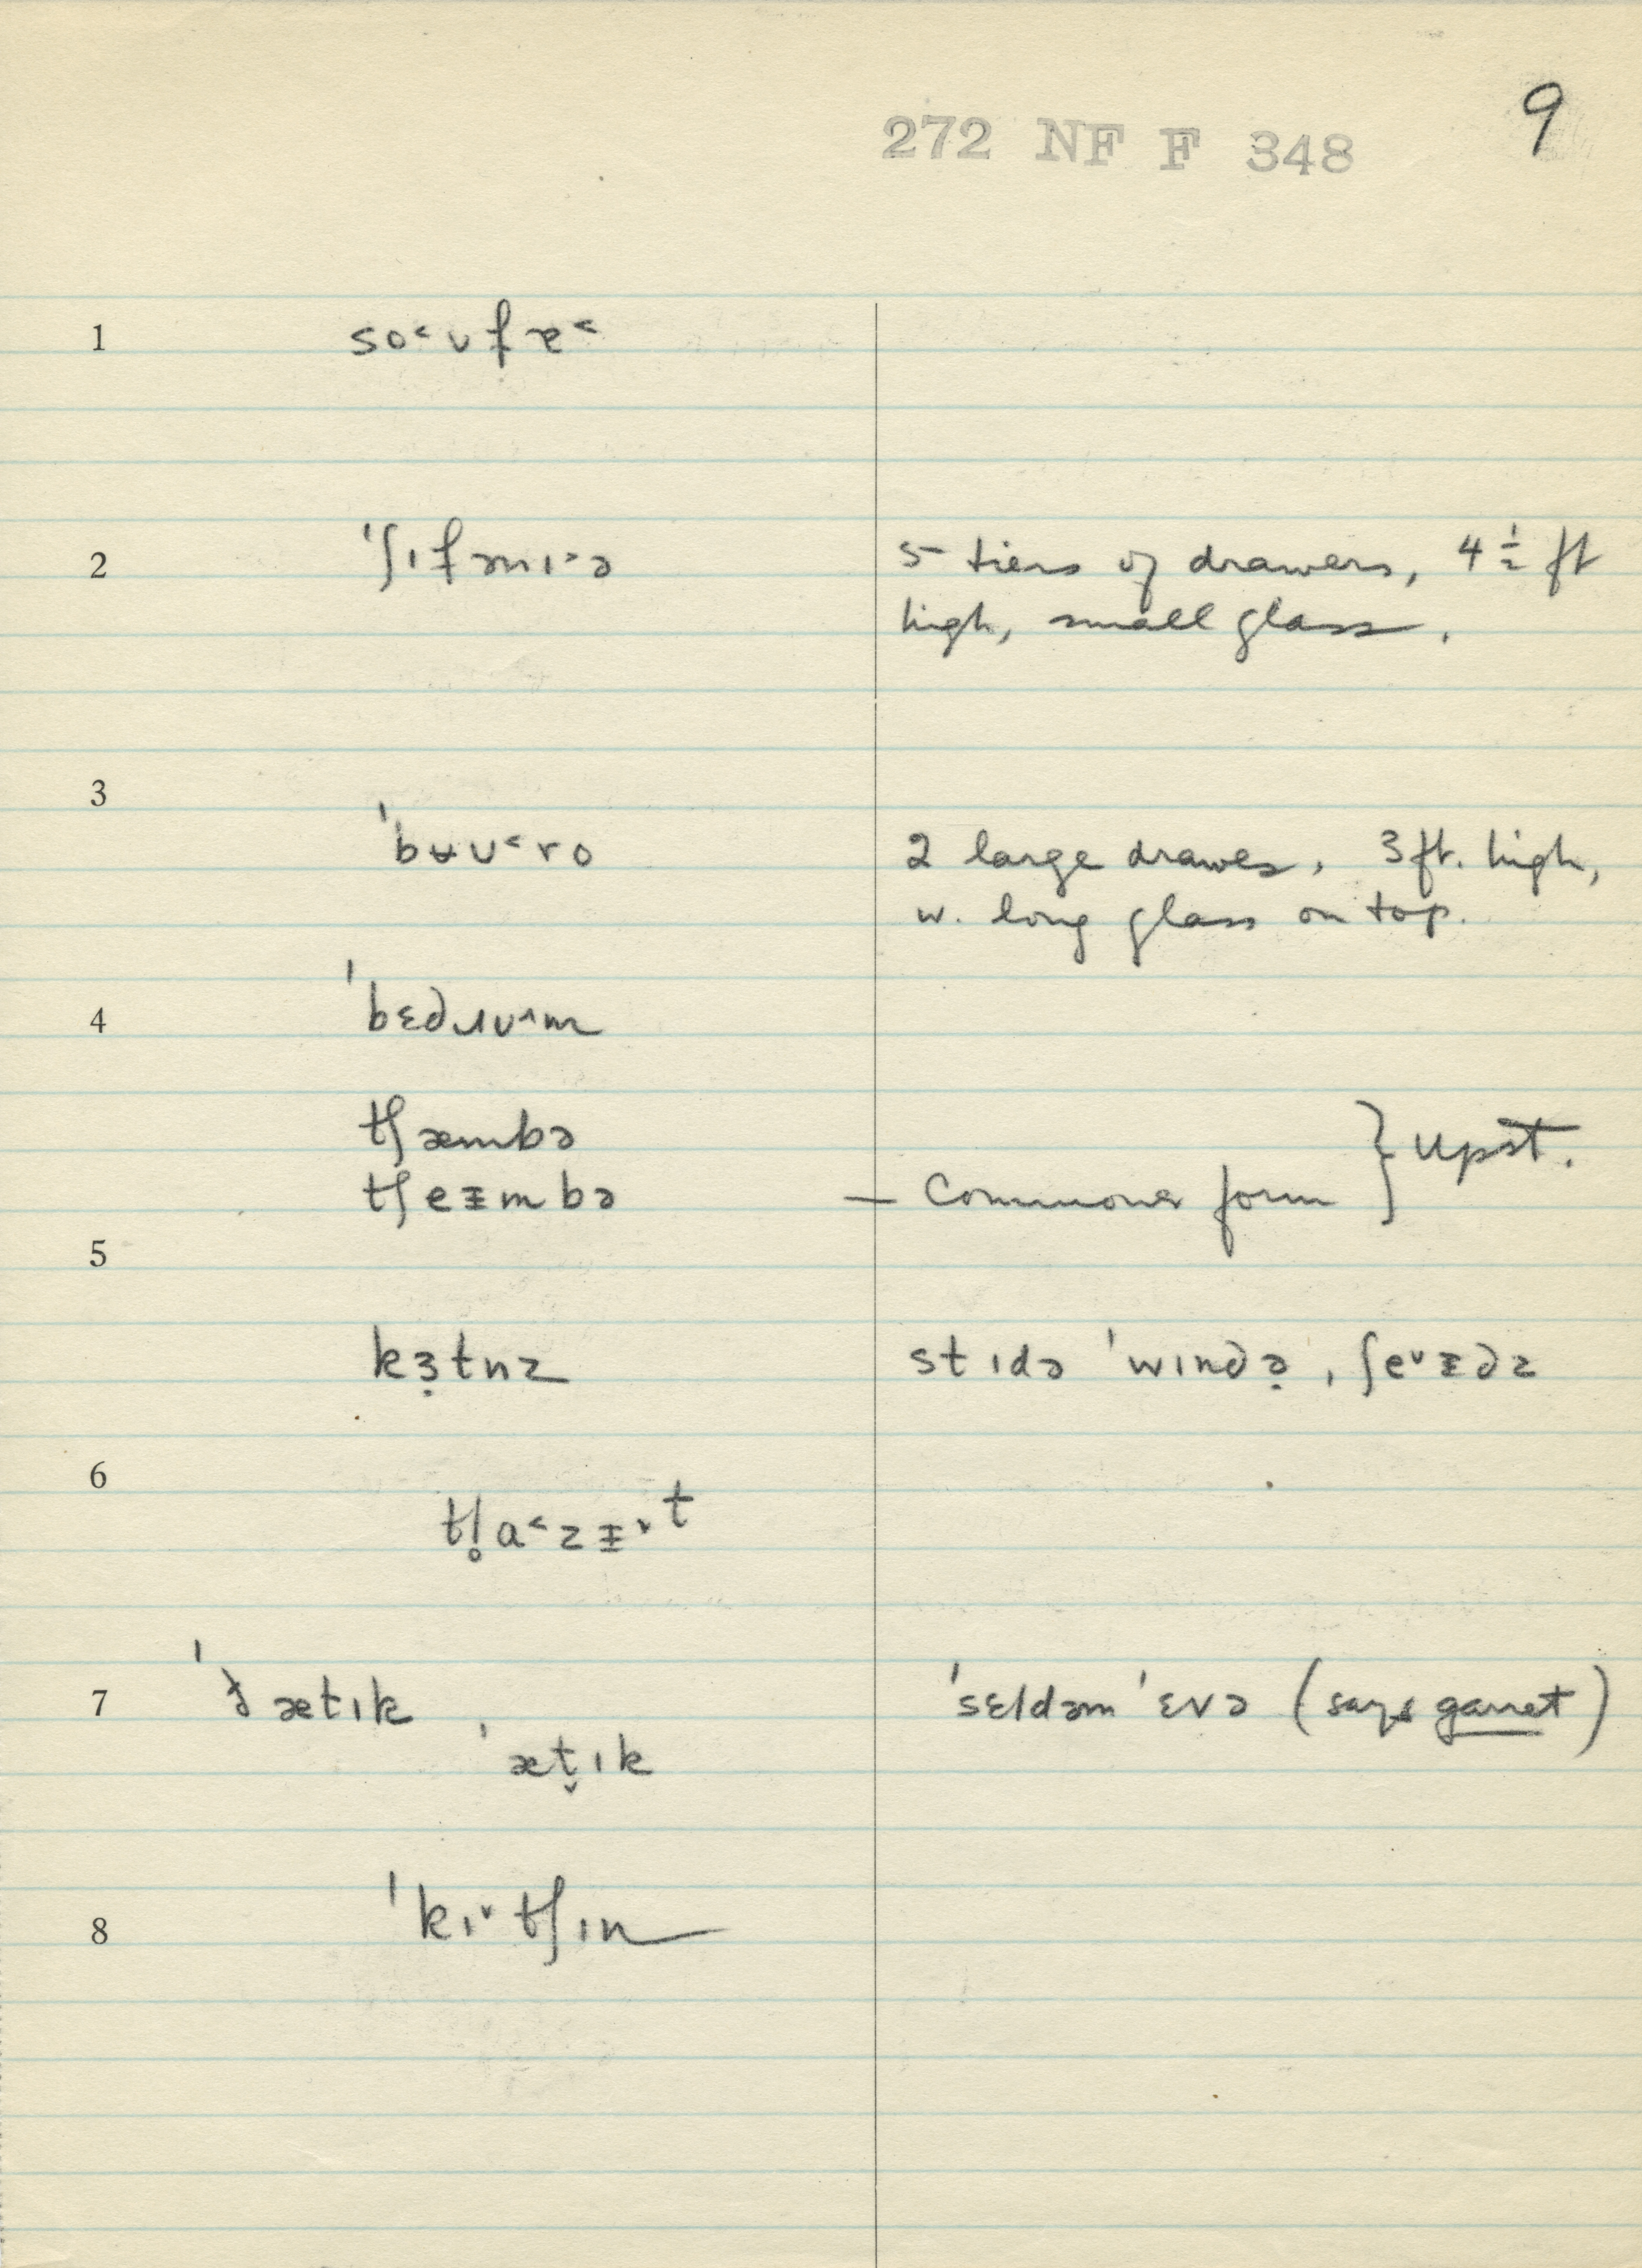 9
272 NF F 348
1 so˂ᴜfɐ˂
2 ˈʃɪfənɪ˃ə 5 tiers of drawers, 4 1/2 ft
high, small glass.
3
ˈbʉᴜ˂ro 2 large drawes, 3 ft. high,
w. long glass on top.
4 ˈbɛdɹᴜ˄m
tʃæmbə
tʃeᵻmbə — Commoner form } Upst.
5
kɜ̣tnz stɪdə ˈwɪndə̣, ʃe˅ᵻdz
6
tʃ̥a˂zᵻ˅t
7 ˈðætɪk ˈsɛldəm ˈɛvə (says garret)
ˈæt̬ɪk
8 ˈkɪ˅tʃɪn